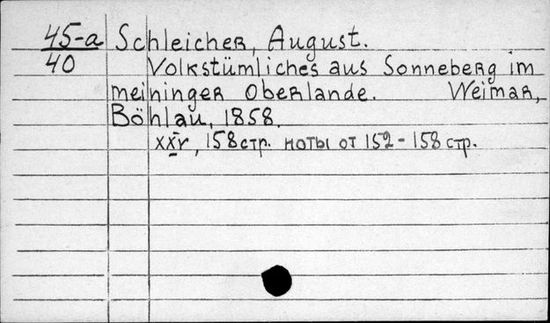 45-a Schleicher, August.
40 Volkstümliches aus Sonneberg im
meininger Oberlande. Weimar,
Böhlau, 1858.
XXV, 158 стр. ноты от 152-158 стр.